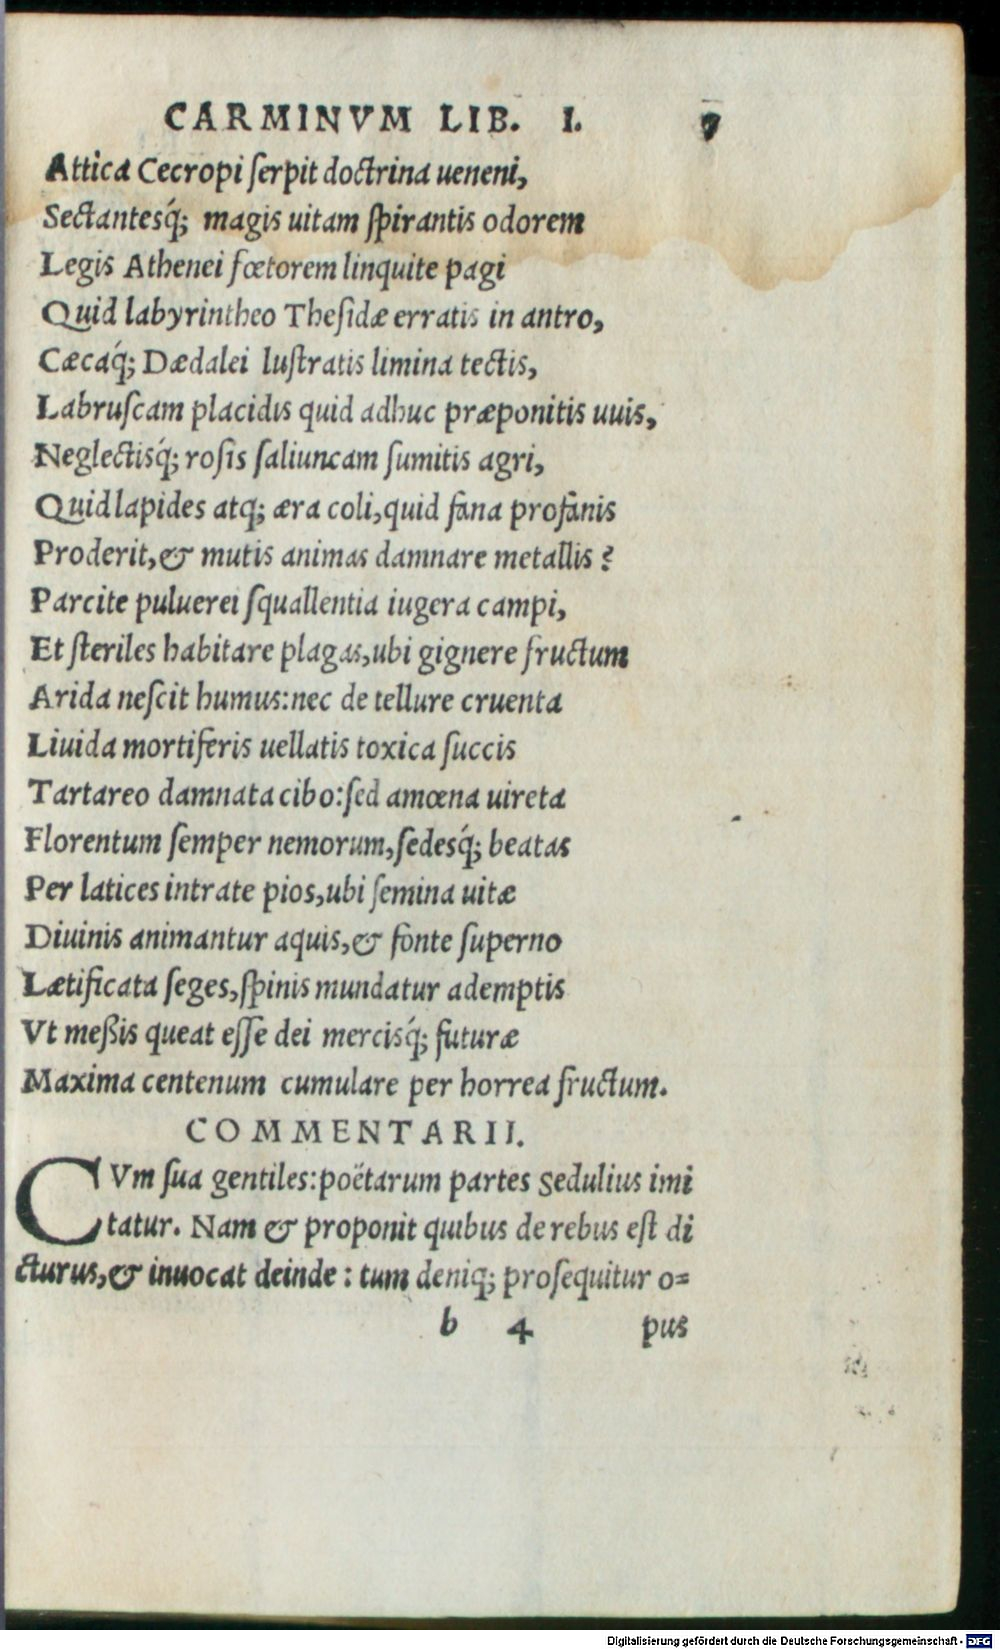 CARMINVM LIB. I. 7
Attica Cecropi ſerpit doctrina ueneni,
Sectantesq́; magis uitam ſpirantis odorem
Legis Athenei fœtorem linquite pagi
Quid labyrintheo Theſidæ erratis in antro,
Cæcaq́; Dædalei luſtratis limina tectis,
Labruſcam placidis quid adhuc præponitis uuis,
Neglectisq́; roſis ſaliuncam ſumitis agri,
Quid lapides atq; æra coli, quid fana profanis
Proderit, & mutis animas damnare metallis?
Parcite puluerei ſquallentia iugera campi,
Et ſteriles habitare plagas, ubi gignere fructum
Arida neſcit humus: nec de tellure cruenta
Liuida mortiferis uellatis toxica ſuccis
Tartareo damnata cibo: ſed amœna uireta
Florentum ſemper nemorum, ſedesq́; beatas
Per latices intrate pios, ubi ſemina uitæ
Diuinis animantur aquis, & fonte ſuperno
Lætificata ſeges, ſpinis mundatur ademptis
Vt meßis queat eſſe dei mercisq́; futuræ
Maxima centenum cumulare per horrea fructum.
COMMENTARII.
CVm ſua gentiles: poëtarum partes Sedulius imi
tatur. Nam & proponit quibus de rebus eſt di
cturus, & inuocat deinde: tum deniq; proſequitur o=
b 4 pus
Digitalisierung gefördert durch die Deutsche Forschungsgemeinschaft - DFG